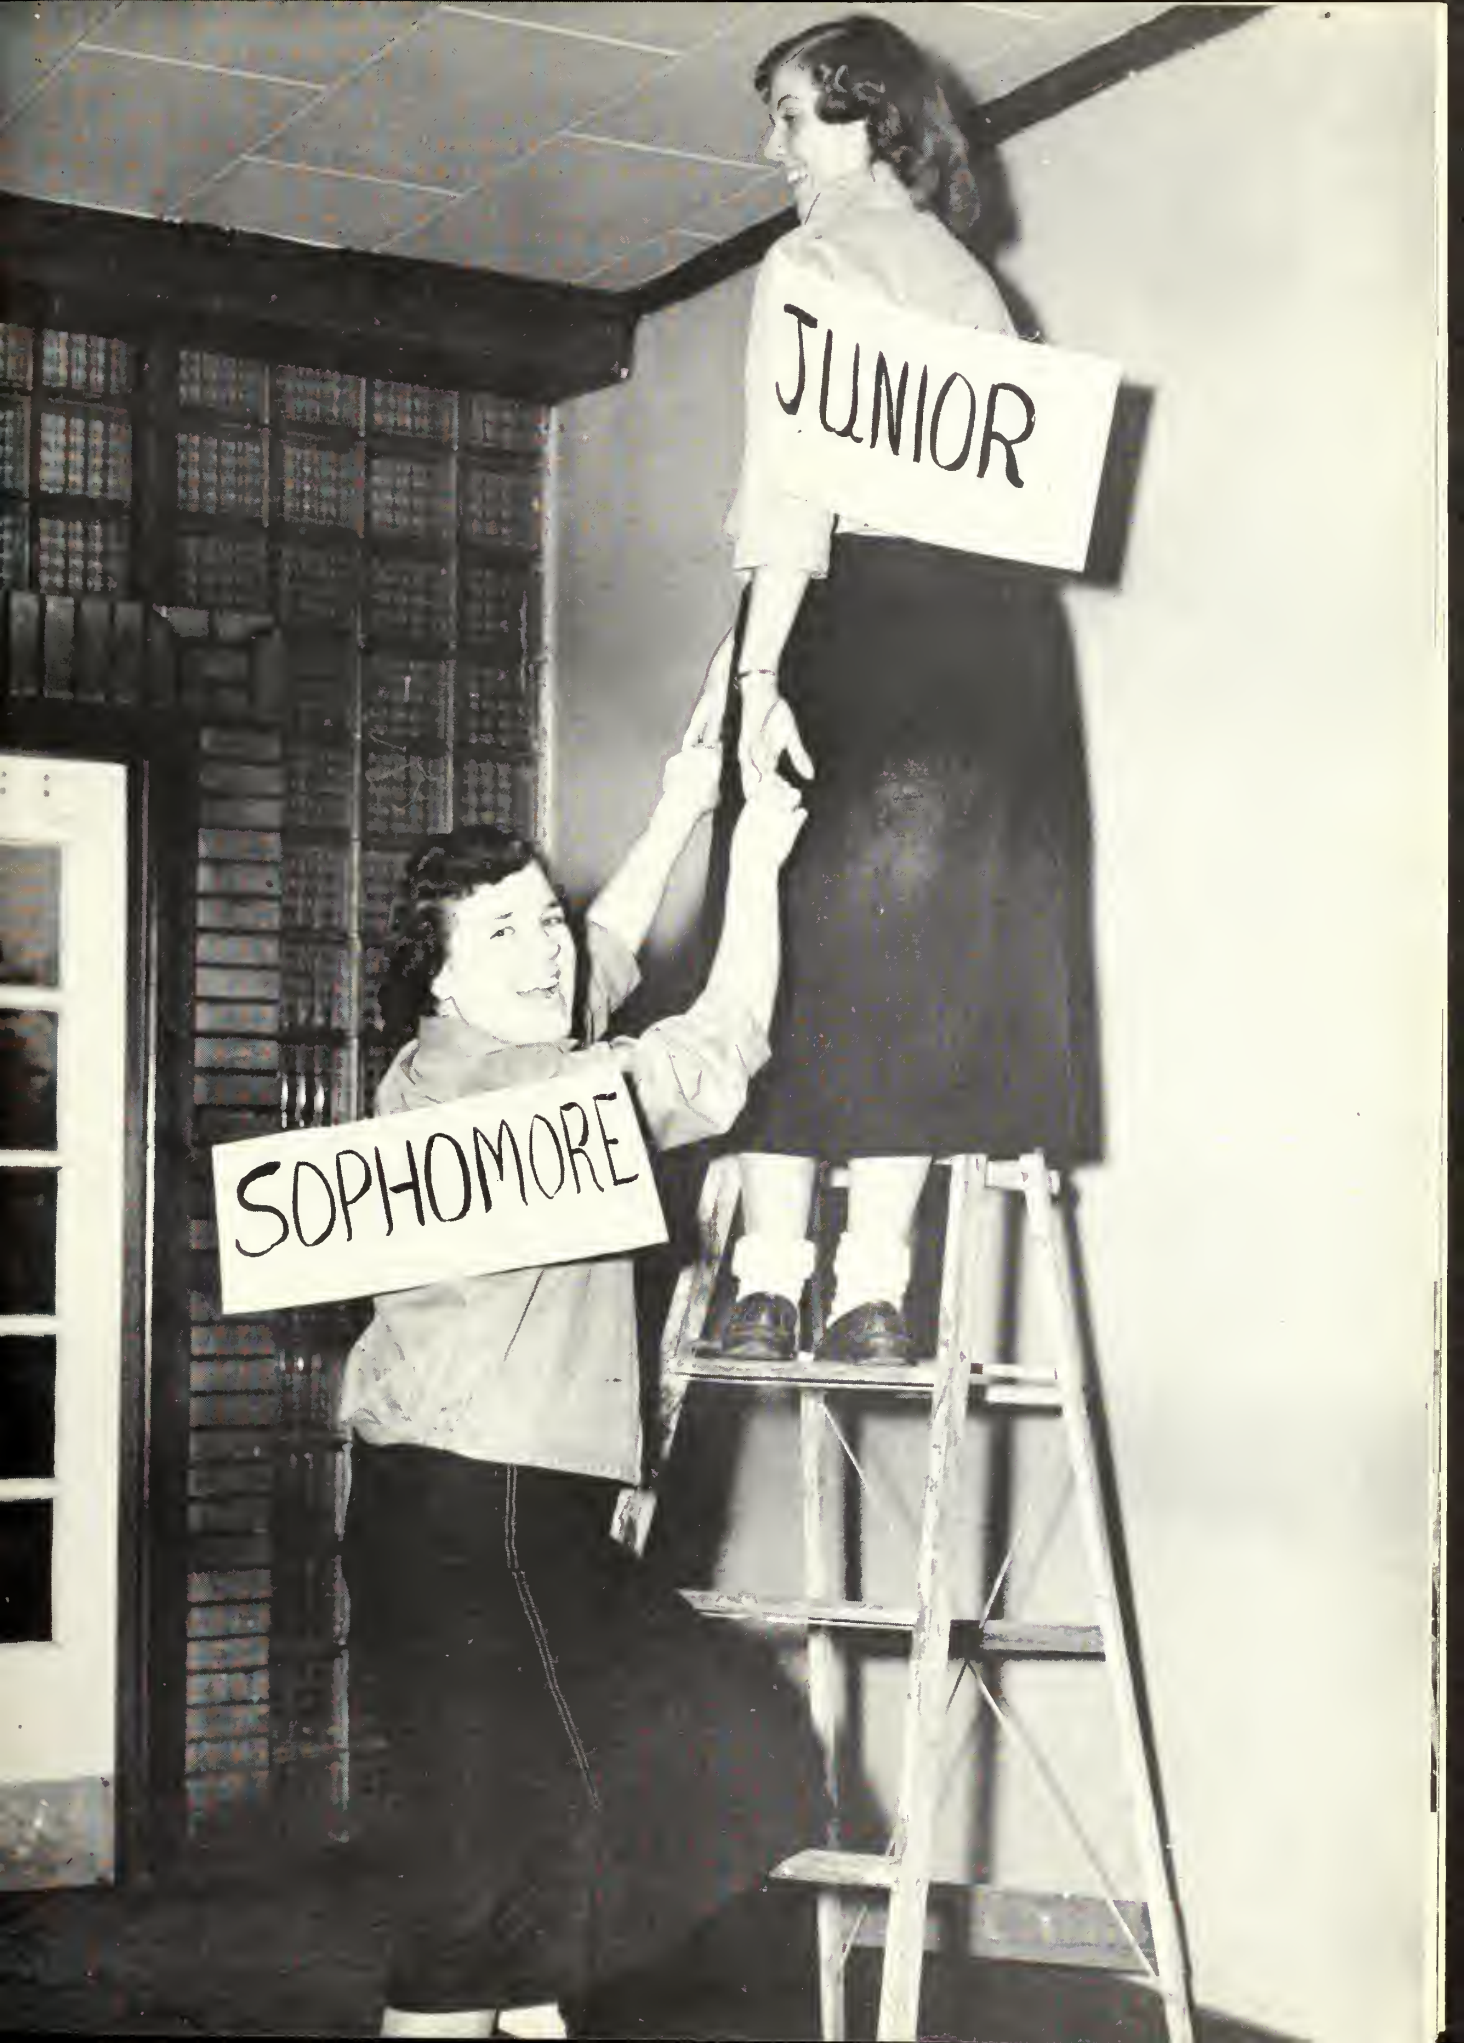 JUNIOR
SOPHOMORE